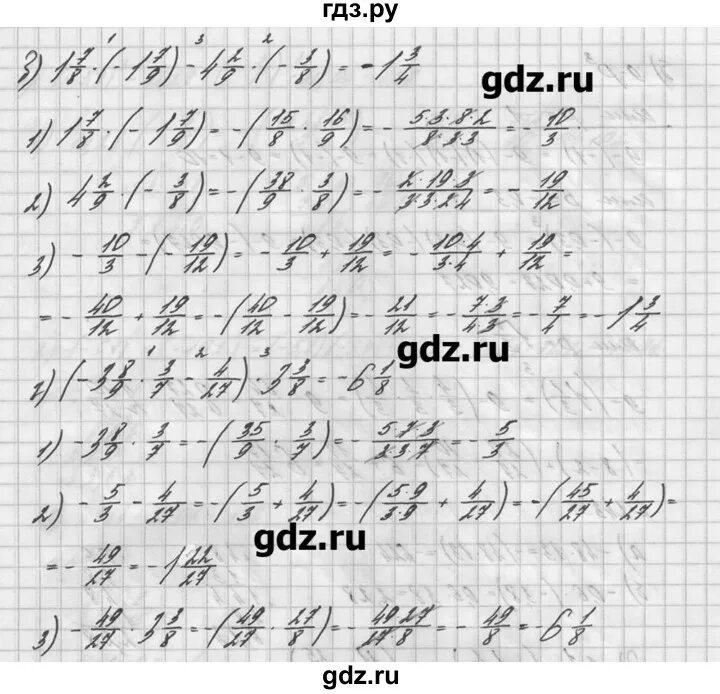 гдз.ру
3) 1 7/8 · (-1 7/9) - 4 2/9 · (-3/8) = -1 3/4
gdz.ru
1) 1 7/8 · (-1 7/9) = -(15/8 · 16/9) = -(5·3·8·2)/(8·3·3) = -10/3
2) 4 2/9 · (-3/8) = -(38/9 · 3/8) = -(2·19·3)/(3·3·2·4) = -19/12
3) -10/3 - (-19/12) = -10/3 + 19/12 = -(10·4)/(3·4) + 19/12 =
= -40/12 + 19/12 = -(40/12 - 19/12) = -21/12 = -(7·3)/(4·3) = -7/4 = -1 3/4
gdz.ru
г) (-3 8/9 · 3/7 - 4/27) · 3 3/8 = -6 1/8
1) -3 8/9 · 3/7 = -(35/9 · 3/7) = -(5·7·3)/(3·3·7) = -5/3
2) -5/3 - 4/27 = -(5/3 + 4/27) = -((5·9)/(3·9) + 4/27) = -(45/27 + 4/27) =
gdz.ru
= -49/27 = -1 22/27
3) -49/27 · 3 3/8 = -(49/27 · 27/8) = -(49·27)/(27·8) = -49/8 = -6 1/8
gdz.ru